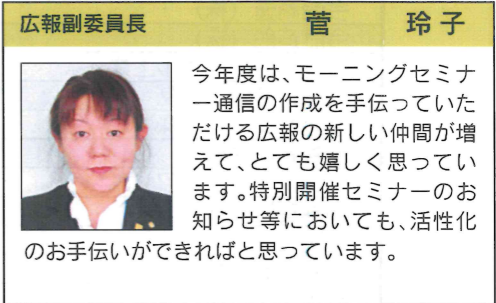 広報副委員長 菅 玲子
今年度は、モーニングセミナ
ー通信の作成を手伝っていた
だける広報の新しい仲間が増
えて、とても嬉しく思ってい
ます。特別開催セミナーのお
知らせ等においても、活性化
のお手伝いができればと思っています。